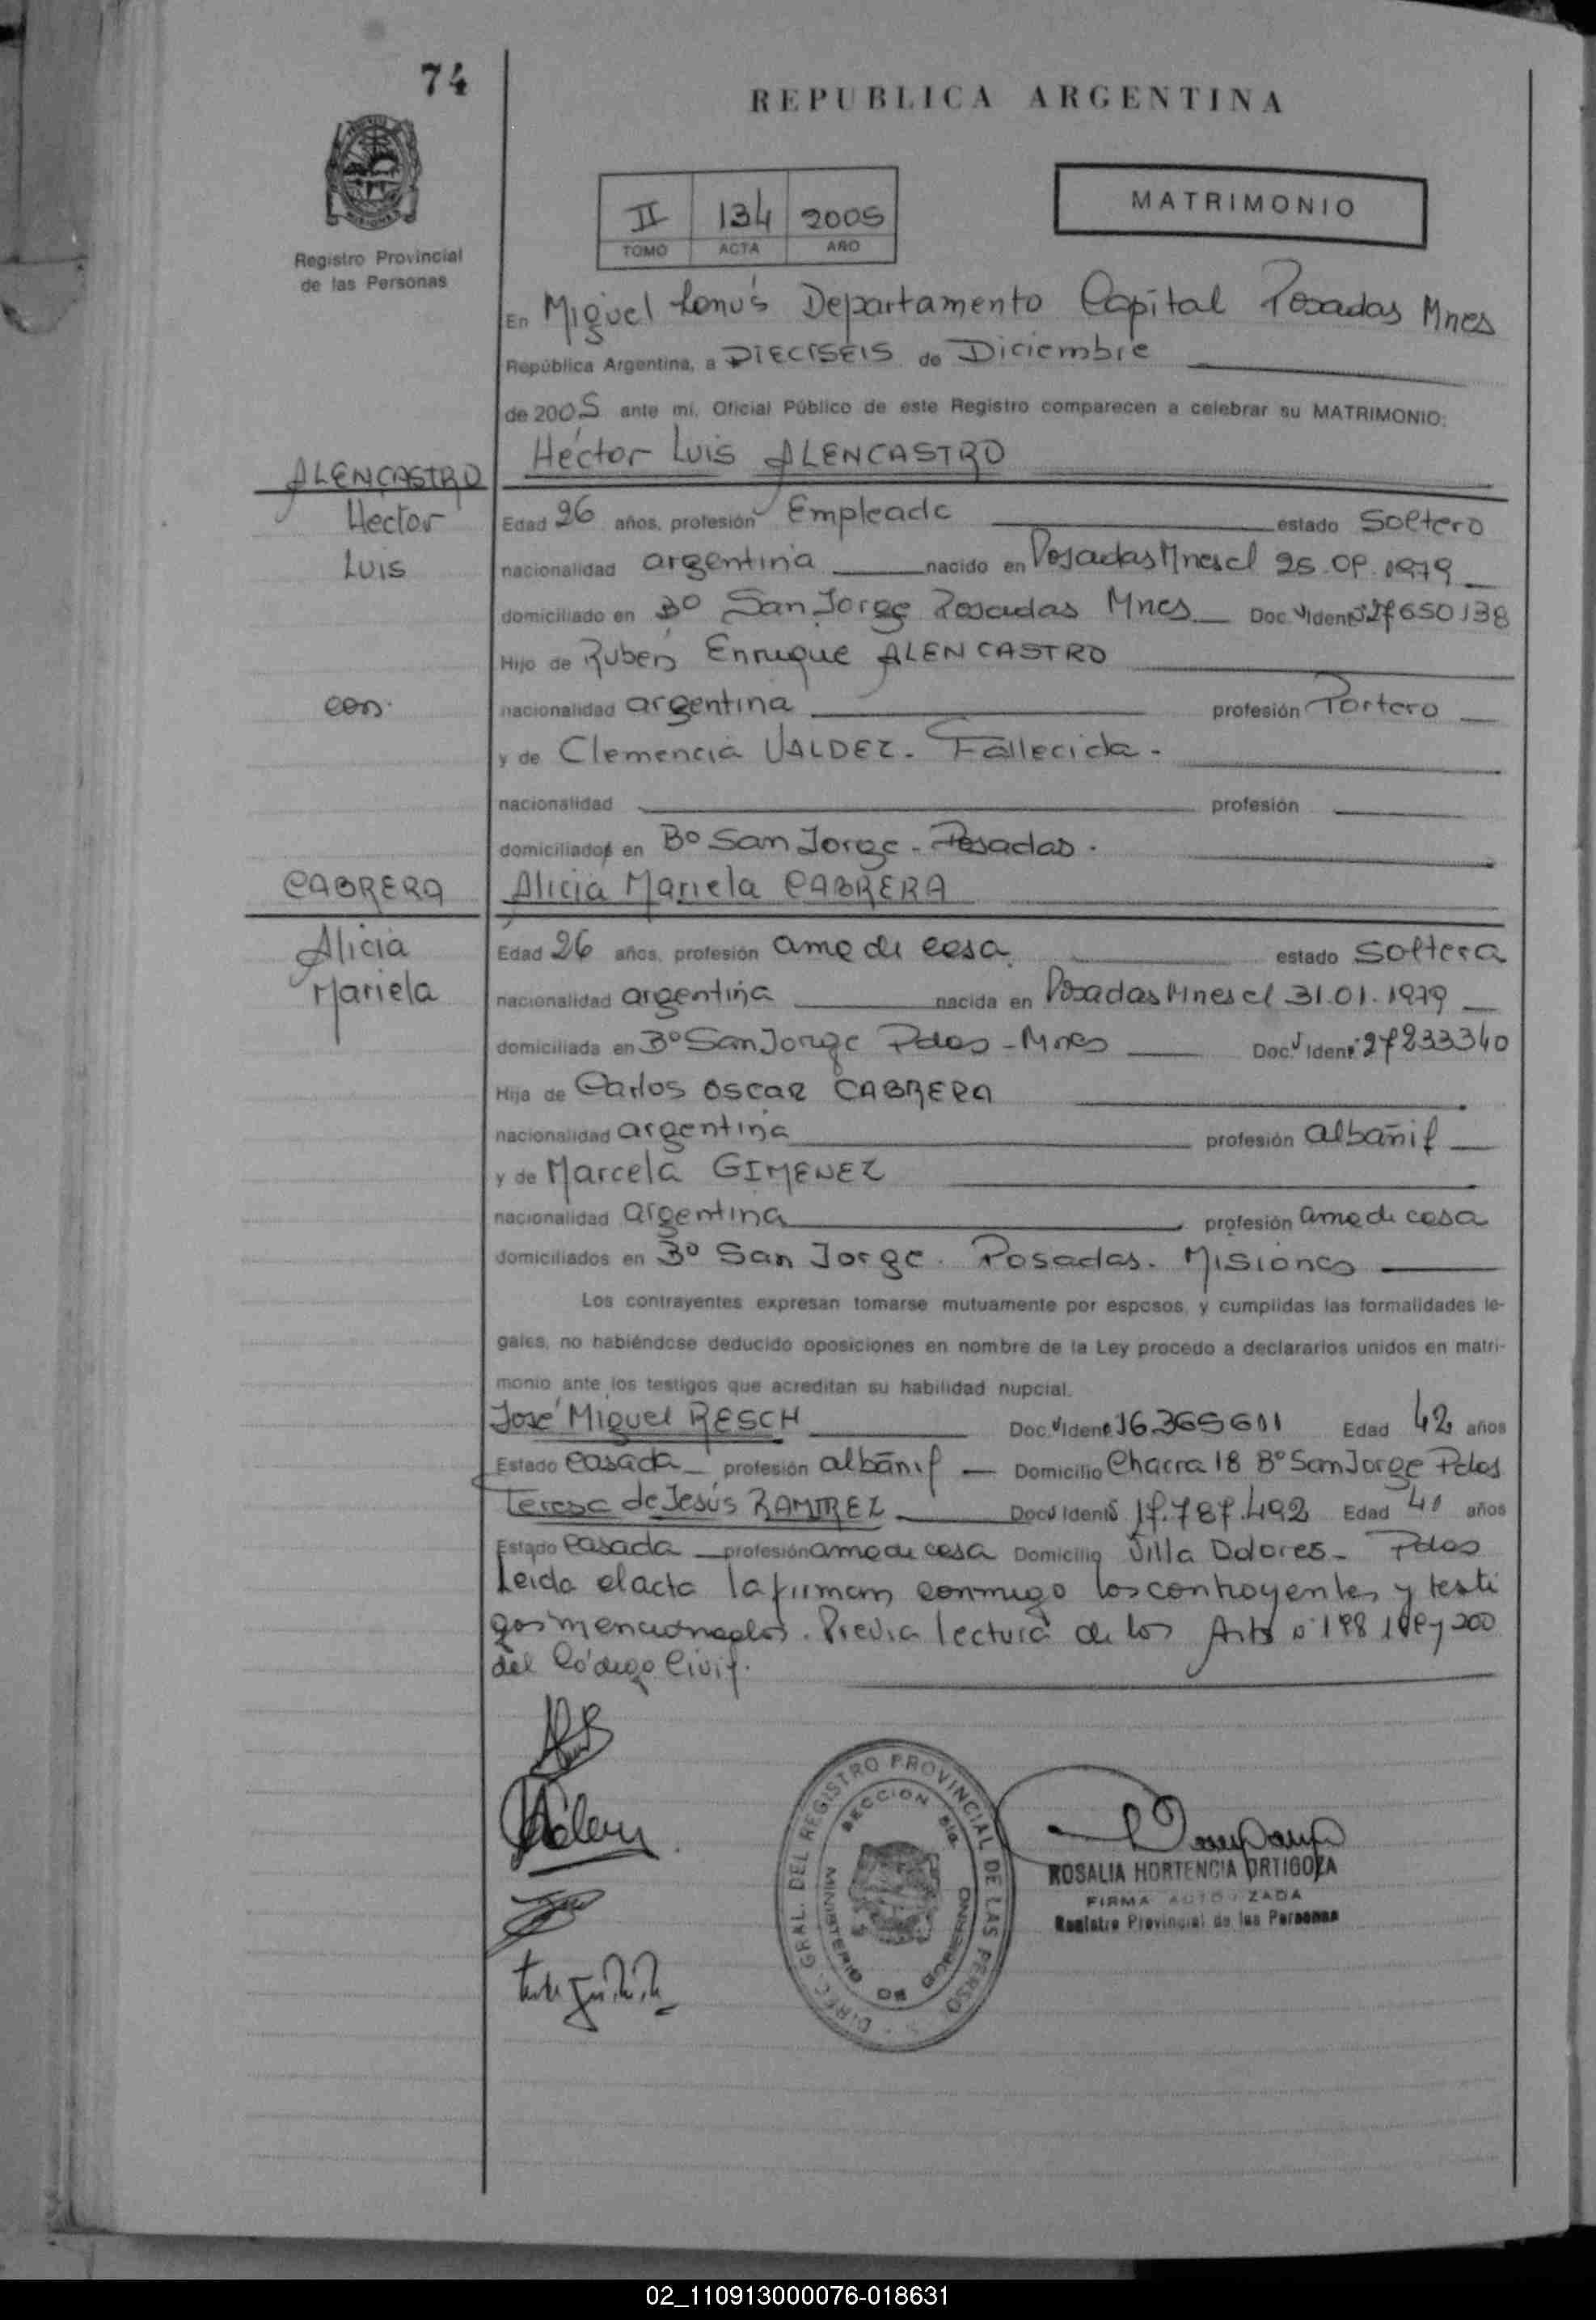 74
REPUBLICA ARGENTINA
II 134 2005
TOMO ACTA AÑO
MATRIMONIO
Registro Provincial
de las Personas
En Miguel Lanús Departamento Capital Posadas Mnes
República Argentina, a DIECISEIS de Diciembre
de 2005 ante mí, Oficial Público de este Registro comparecen a celebrar su MATRIMONIO:
ALENCASTRO
Héctor Luis ALENCASTRO
Hector
Edad 26 años, profesión Empleado estado Soltero
Luis
nacionalidad argentina nacido en Posadas Mnes el 25.09.1979
domiciliado en Bº San Jorge Posadas Mnes Doc. Ident. 27650138
Hijo de Rubén Enrique ALENCASTRO
con
nacionalidad argentina profesión Portero
y de Clemencia VALDEZ - Fallecida -
nacionalidad profesión
domiciliados en Bº San Jorge - Posadas -
CABRERA
Alicia Mariela CABRERA
Alicia
Edad 26 años, profesión ama de casa estado Soltera
Mariela
nacionalidad argentina nacida en Posadas Mnes el 31.01.1979
domiciliada en Bº San Jorge Pdas - Mnes Doc. Ident. 27233340
Hija de Carlos Oscar CABRERA
nacionalidad argentina profesión albañil
y de Marcela GIMENEZ
nacionalidad argentina profesión ama de casa
domiciliados en Bº San Jorge - Posadas - Misiones
Los contrayentes expresan tomarse mutuamente por esposos, y cumplidas las formalidades le-
gales, no habiéndose deducido oposiciones en nombre de la Ley procedo a declararlos unidos en matri-
monio ante los testigos que acreditan su habilidad nupcial.
José Miguel RESCH Doc. Ident. 16.365601 Edad 42 años
Estado Casada profesión albañil Domicilio Chacra 18 Bº San Jorge Pdas
Teresa de Jesús RAMIREZ Doc. Ident. 17.787.492 Edad 41 años
Estado Casada profesión ama de casa Domicilio Villa Dolores - Pdas
Leida el acta la firman conmigo los contrayentes y testi
gos mencionados. Previa lectura de los Arts nº 198 199 y 200
del Código Civil.
DIREC. GRAL. DEL REGISTRO PROVINCIAL DE LAS PERSO
SECCION
MINISTERIO DE GOBIERNO
ROSALIA HORTENCIA ORTIGOZA
FIRMA AUTORIZADA
Registro Provincial de las Personas
02_110913000076-018631